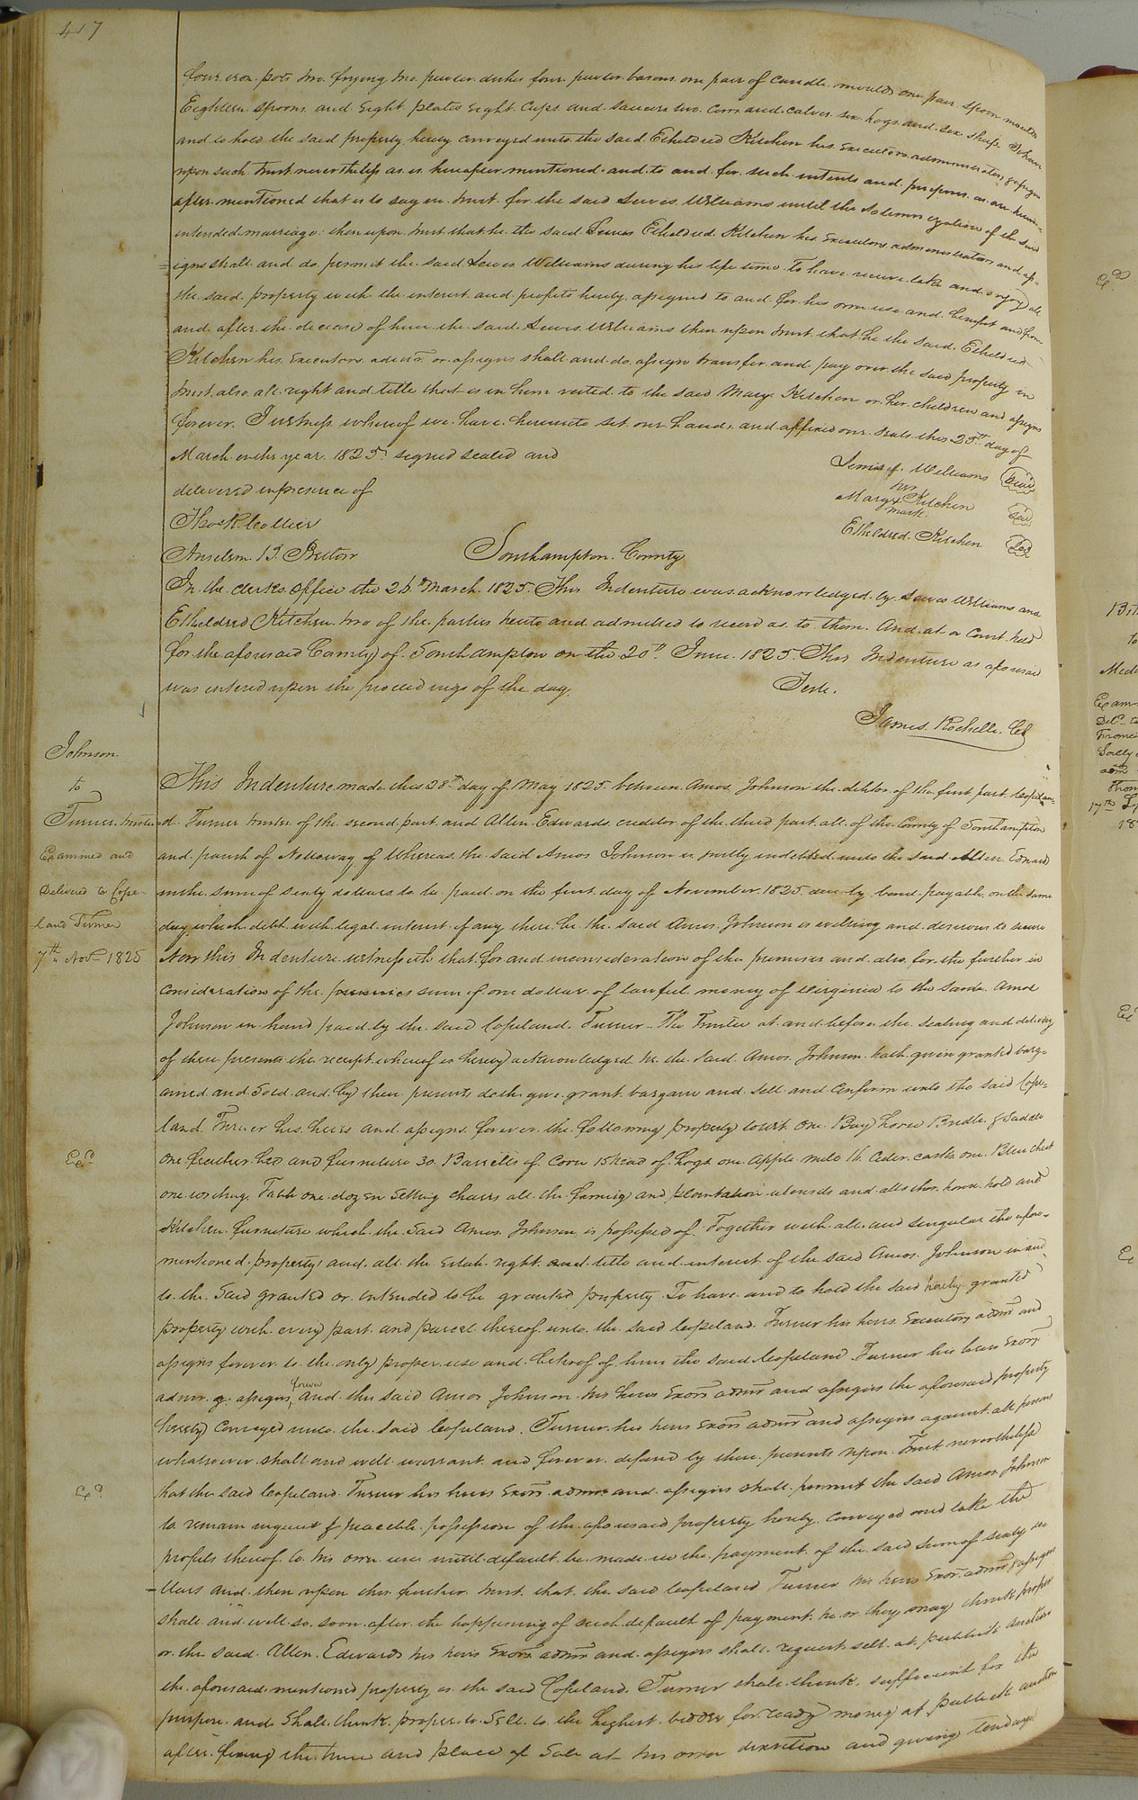 417
four iron pots two frying two pewter dishes four pewter basons one pair of candle moulds one pair spoon moulds
Eighteen spoons and Eight plates Eight Cups and saucers two Cows and calves six hogs and six sheep To have
and to hold the said property hereby conveyed unto the said Etheldred Kitchen his Executors administrators & assigns
upon such trust nevertheless as is hereafter mentioned and to and for such intents and purposes as are herein
after mentioned that is to say in trust for the said Lewis Williams until the solemnization of the said
intended marriage then upon trust that he the said Lewis Etheldred Kitchen his Executors administrators and ass-
igns shall and do permit the said Lewis Williams during his life time To have receive take and enjoy all
the said property with the interest and profits hereby assigned to and for his own use and benefit and from
and after the decease of him the said Lewis Williams then upon trust that he the said Etheldred
Kitchen his Executors admrs. or assigns shall and do assign transfer and pay over the said property in
trust also all right and title that is in him vested to the said Mary Kitchen or her children and assigns
forever. In witness whereof we have hereunto set our hands and affixed our seals this 25th day of
March in the year 1825 signed sealed and
delivered in presence of
Lewis Williams seal
his
Mary X Kitchen seal
mark
Etheldred Kitchen seal
Thos. K. Collier
Anselm B.
Southampton County
In the clerks office the 26th March 1825 This Indenture was acknowledged by Lewis Williams and
Etheldred Kitchen two of the parties hereto and admitted to record as to them. And at a Court held
for the aforesaid County of Southampton on the 20th June 1825 This Indenture as aforesaid
was entered upon the proceedings of the day.
Teste.
James Rochelle. Clk
Johnson
to
Turner trustee
Examined and
Delivered to Cope-
land Turner
7th Nov. 1825
This Indenture made this 28th day of May 1825 between Amos Johnson the debtor of the first part Copelan-
d Turner trustee of the second part and Allen Edwards creditor of the third part all of the County of Southampton
and parish of Nottoway of Whereas the said Amos Johnson is justly indebted unto the said Allen Edwards
in the sum of sixty dollars to be paid on the first day of November 1825 due by bond payable on the same
day which debt with legal interest if any there be the said Amos Johnson is willing and desirous to secure
Now this Indenture witnesseth that for and in consideration of the premises and also for the further in
consideration of the premises sum of one dollar of lawful money of Virginia to the said Amos
Johnson in hand paid by the said Copeland Turner The Trustee at and before the sealing and delivery
of these presents the receipt whereof is hereby acknowledged he the said Amos Johnson hath given granted barg-
ained and sold and by these presents doth give grant bargain and sell and confirm unto the said Cope-
land Turner his heirs and assigns forever the following property to wit One Bay horse Bridle & Saddle
one feather bed and furniture 30 Barrels of Corn 15 head of hogs one apple mill 16 Cider casks one Blue chest
one writing Table one dozen setting chairs all the farming and plantation utensils and all other house hold and
Kitchen furniture which the said Amos Johnson is possessed of Together with all and singular the afore-
mentioned property and all the Estate right and title and interest of the said Amos Johnson in and
to the said granted or intended to be granted property To have and to hold the said hereby granted
property with every part and parcel thereof unto the said Copeland Turner his heirs Executors admrs and
assigns forever to the only proper use and behoof of him the said Copeland Turner his heirs Exors
admrs. & assigns forever and the said Amos Johnson his heirs Exors admrs and assigns the aforesaid property
hereby conveyed unto the said Copeland Turner his heirs Exors admrs and assigns against all persons
whatsoever shall and will warrant and forever defend by these presents upon Trust nevertheless
that the said Copeland Turner his heirs Exors admrs and assigns shall permit the said Amos Johnson
to remain in quiet & peaceble possession of the aforesaid property hereby conveyed and take the
profits thereof to his own use until default be made in the payment of the said sum of sixty do-
llars and then upon this further trust that the said Copeland Turner his heirs Exors admrs & assigns
shall and will so soon after the happening of such default of payment he or they may think proper
or the said Allen Edwards his heirs Exors admrs and assigns shall request sell at publick auction
the aforesaid mentioned property as the said Copeland Turner shall think sufficient for the
purpose and shall think proper to sell to the highest bidder for ready money at publick auction
after fixing the time and place of sale at his own discretion and giving ten days